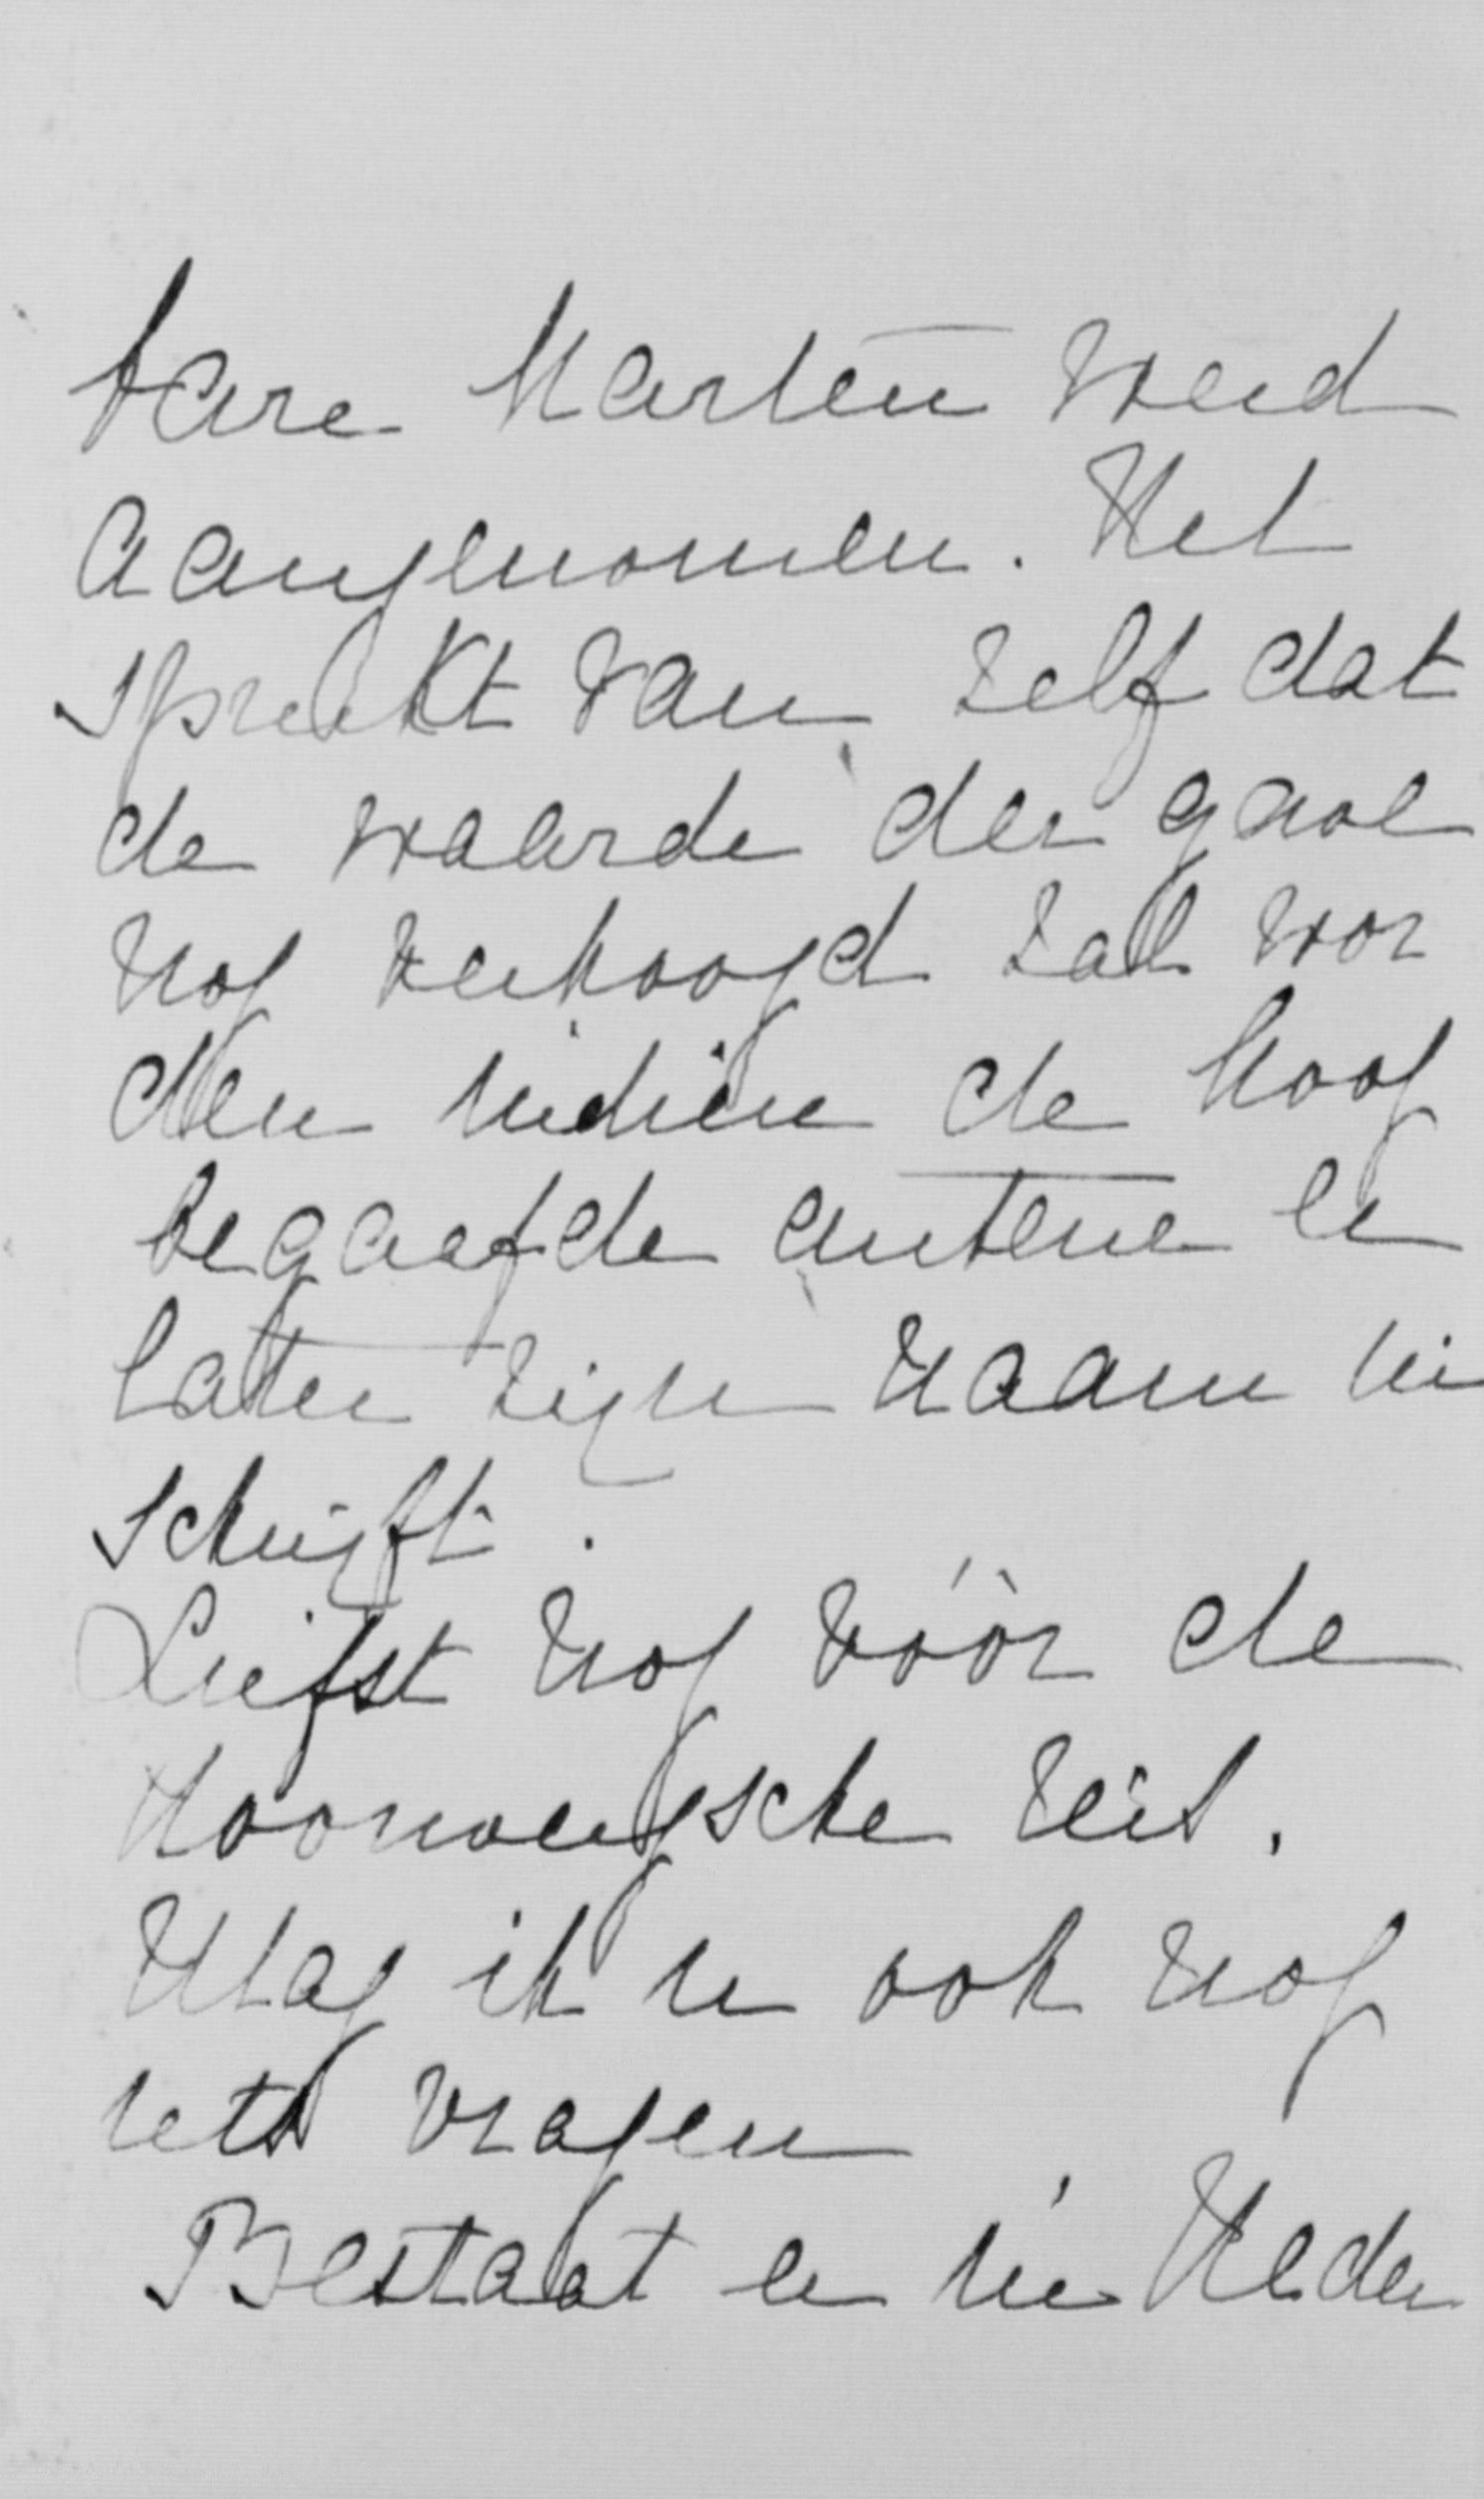 bare Marten werd
aangenomen. Het
spreekt van zelf dat
de waarde der gave
nog verhoogd zal wor
den indien de hoog
begaafde auteur er
later zijn naam in
schrijft.
Liefst nog vóòr de
Noorweegsche reis.
Mag ik u ook nog
iets vragen
Bestaat er in Neder